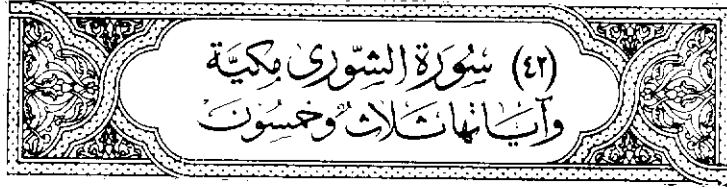 (٤٢) سُورَةُ الشُّورَى مَكِّيَّة
وَآيَاتُهَا ثَلَاثٌ وَخَمْسُونَ